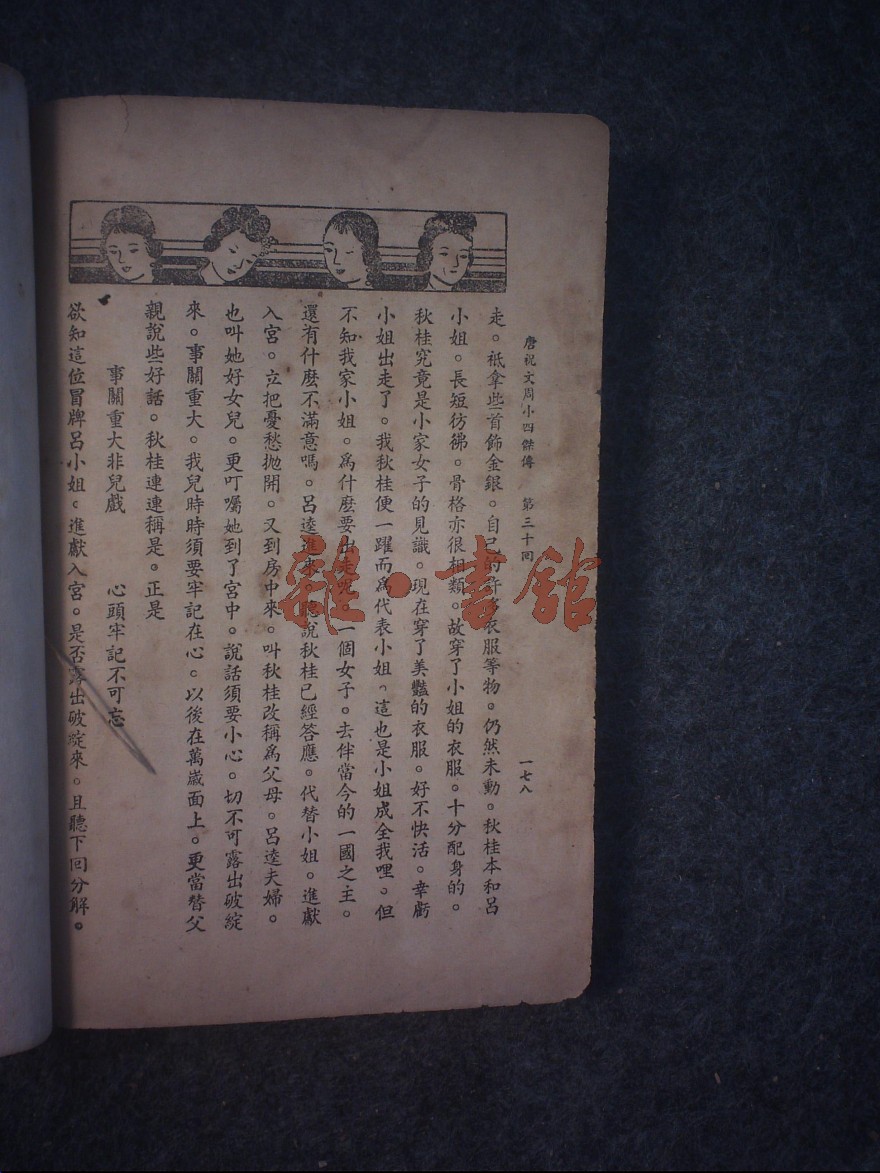 唐祝文周小四傑傳　第三十回　一七八
走。祗拿些首飾金銀。自己的許多衣服等物。仍然未動。秋桂本和呂
小姐。長短彷彿。骨格亦很相類。故穿了小姐的衣服。十分配身的。
秋桂究竟是小家女子的見識。現在穿了美豔的衣服。好不快活。幸虧
小姐出走了。我秋桂便一躍而爲代表小姐。這也是小姐成全我哩。但
不知我家小姐。爲什麽要出走呢。一個女子。去伴當今的一國之主。
還有什麽不滿意嗎。呂逵進來。聽說秋桂已經答應。代替小姐。進獻
入宮。立把憂愁拋開。又到房中來。叫秋桂改稱爲父母。呂逵夫婦。
也叫她好女兒。更叮囑她到了宮中。說話須要小心。切不可露出破綻
來。事關重大。我兒時時須要牢記在心。以後在萬歲面上。更當替父
親說些好話。秋桂連連稱是。正是
事關重大非兒戲　心頭牢記不可忘
欲知這位冒牌呂小姐。進獻入宮。是否露出破綻來。且聽下回分解。
雜·書館